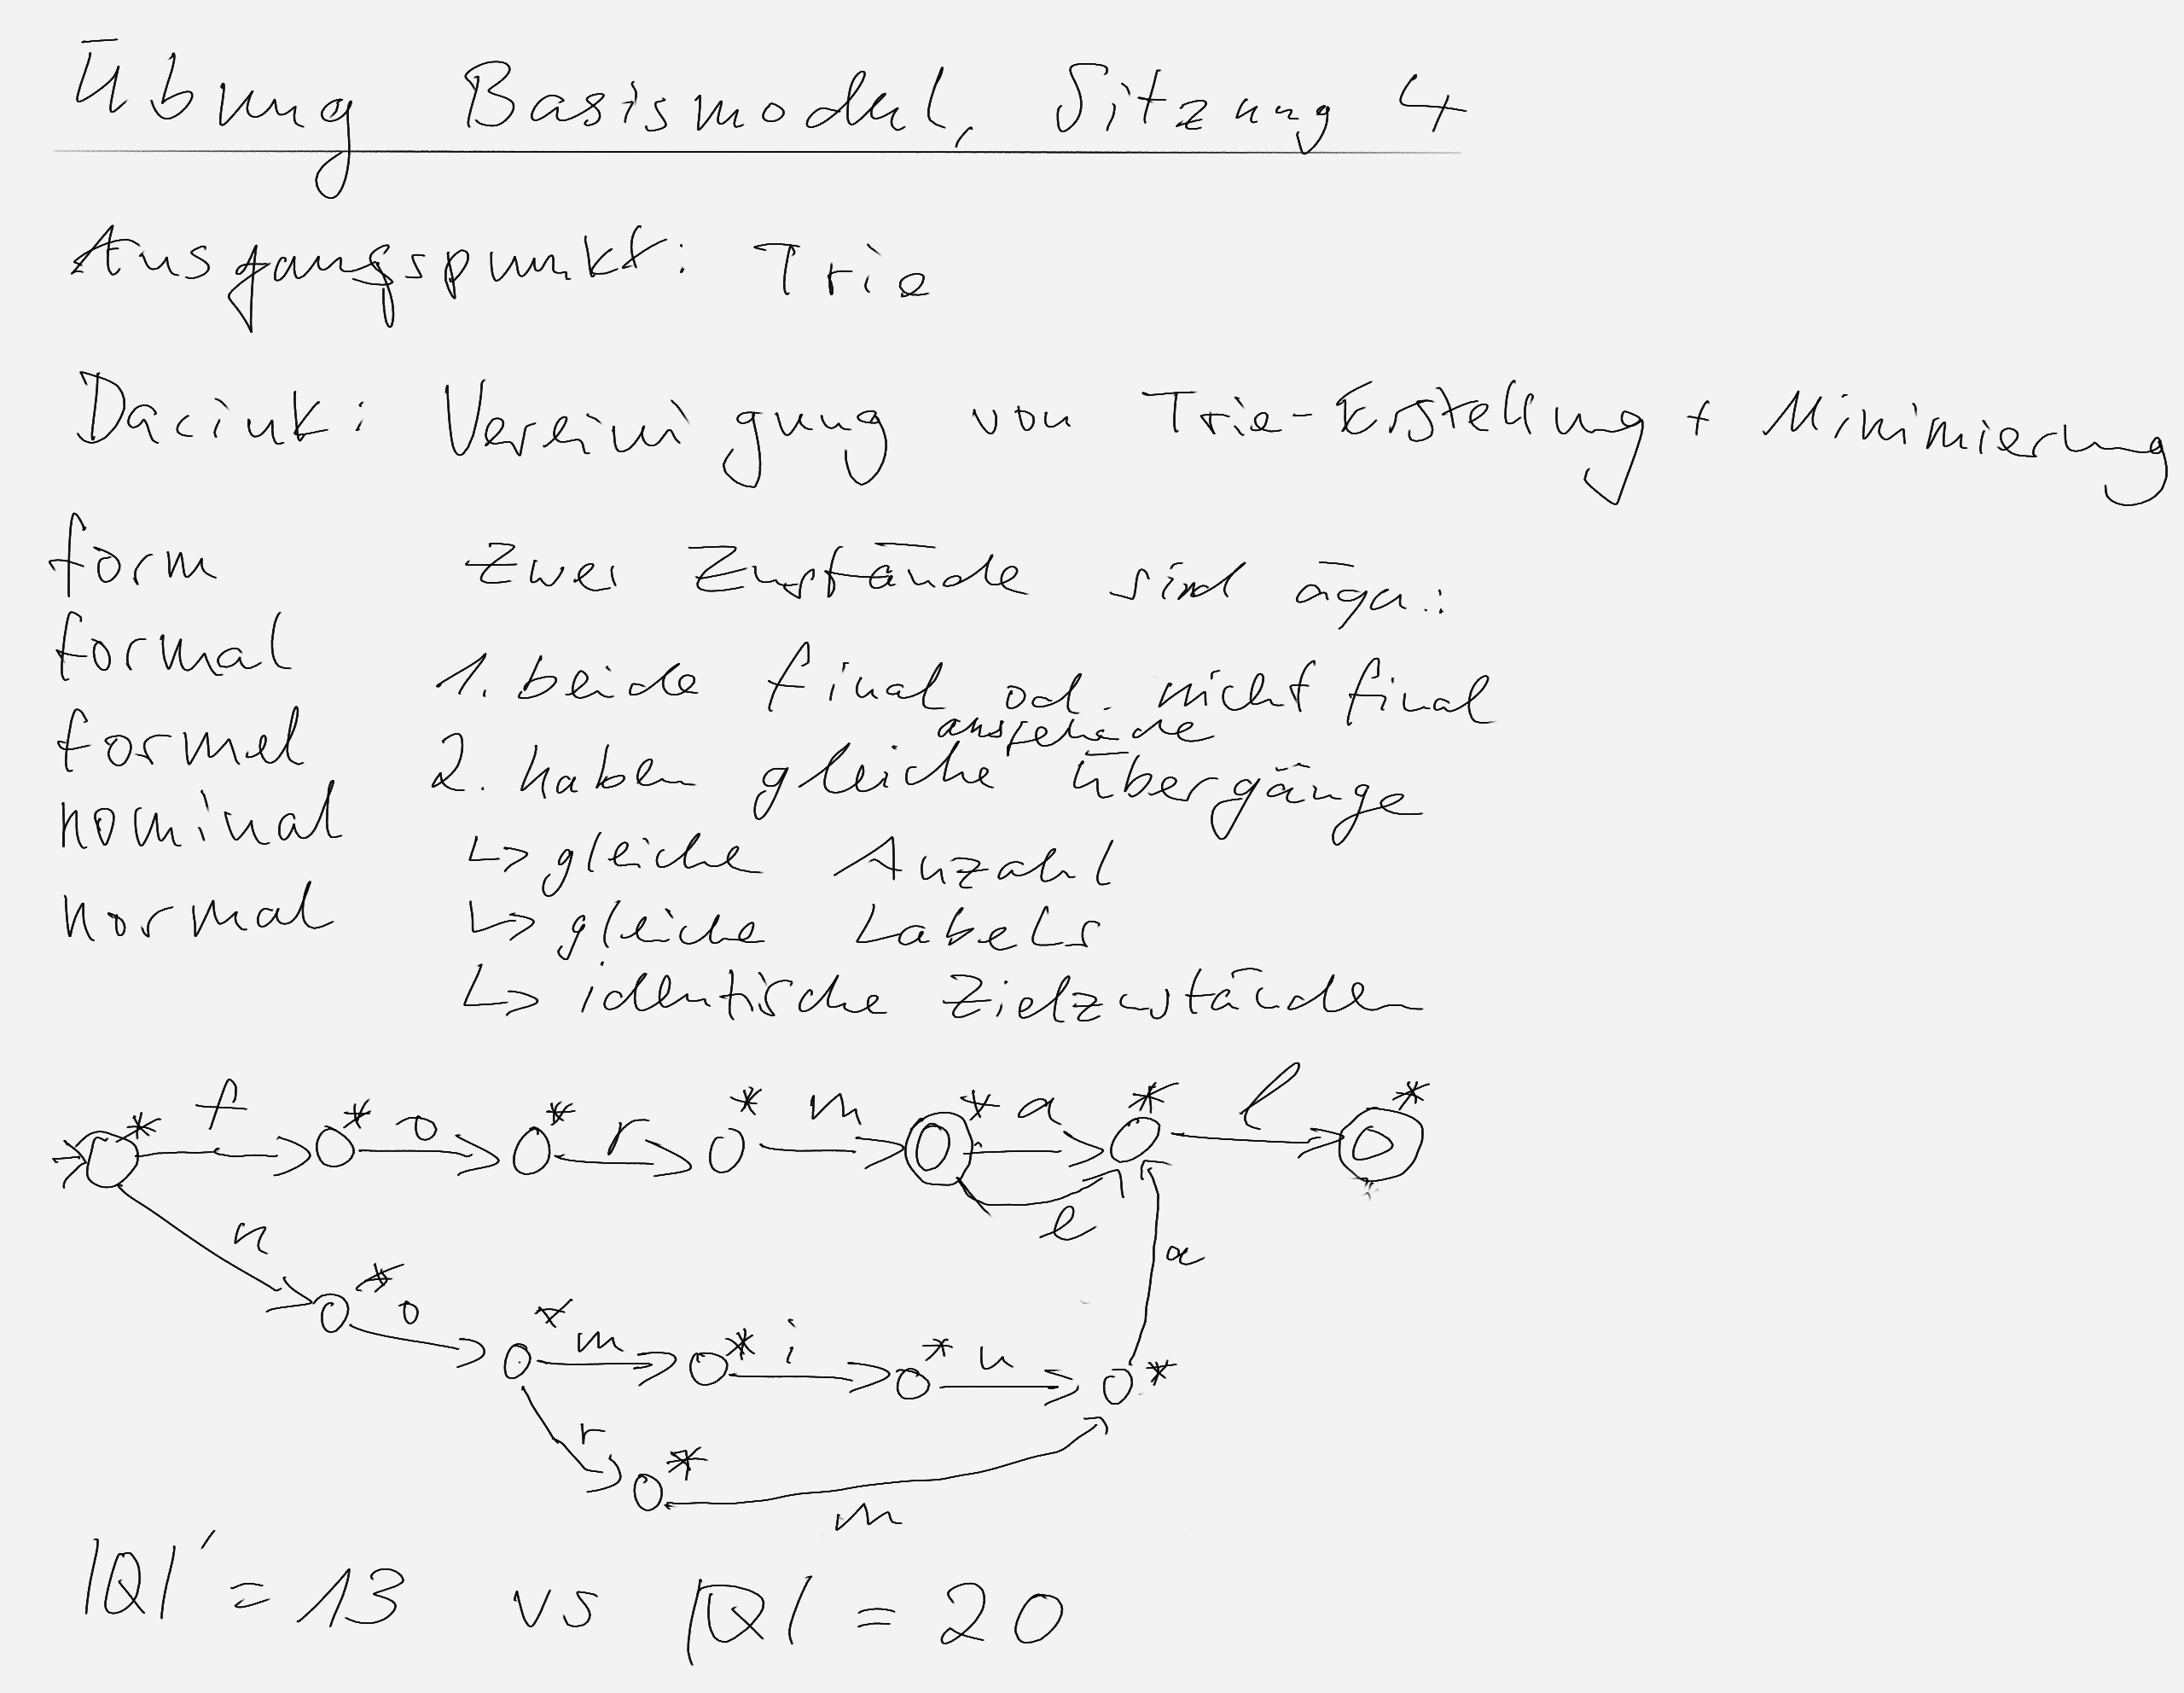 Übung Basismodul, Sitzung 4
Ausgangspunkt: Trie
Daciuk: Vereinigung von Trie-Erstellung + Minimierung
form
formal
formel
nominal
normal
Zwei Zustände sind äqu.:
1. beide final od. nicht final
ausgehende
2. haben gleiche Übergänge
↳ gleiche Anzahl
↳ gleiche Labels
↳ identische Zielzuständen
* f * o * r * m * a * l *
e
n
a
* o * m * i * n *
r
*
m
|Q|' = 13 vs |Q| = 20